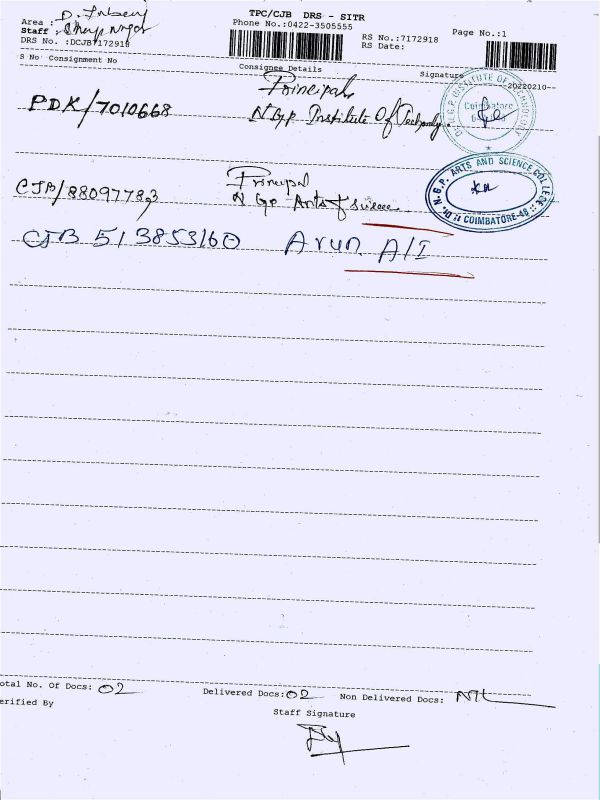 TPC/CJB DRS - SITR
Phone No.:0422-3505555
Area :
Staff :
DRS No. :DCJB7172918
RS No.:7172918
RS Date:
Page No.:1
S No Consignment No
Consignee Details
Signature
--20220210--
PDK/7010668
Principal
N G P Institute Of Technology
Dr. N.G.P. INSTITUTE OF TECHNOLOGY
Coimbatore
CJB/880977823
Principal
N G P Arts & Science
Dr. N.G.P. ARTS AND SCIENCE COLLEGE
COIMBATORE-48
CJB 513853160 Arun A/I
otal No. Of Docs: 02
Delivered Docs: 02
Non Delivered Docs: NIL
erified By
Staff Signature